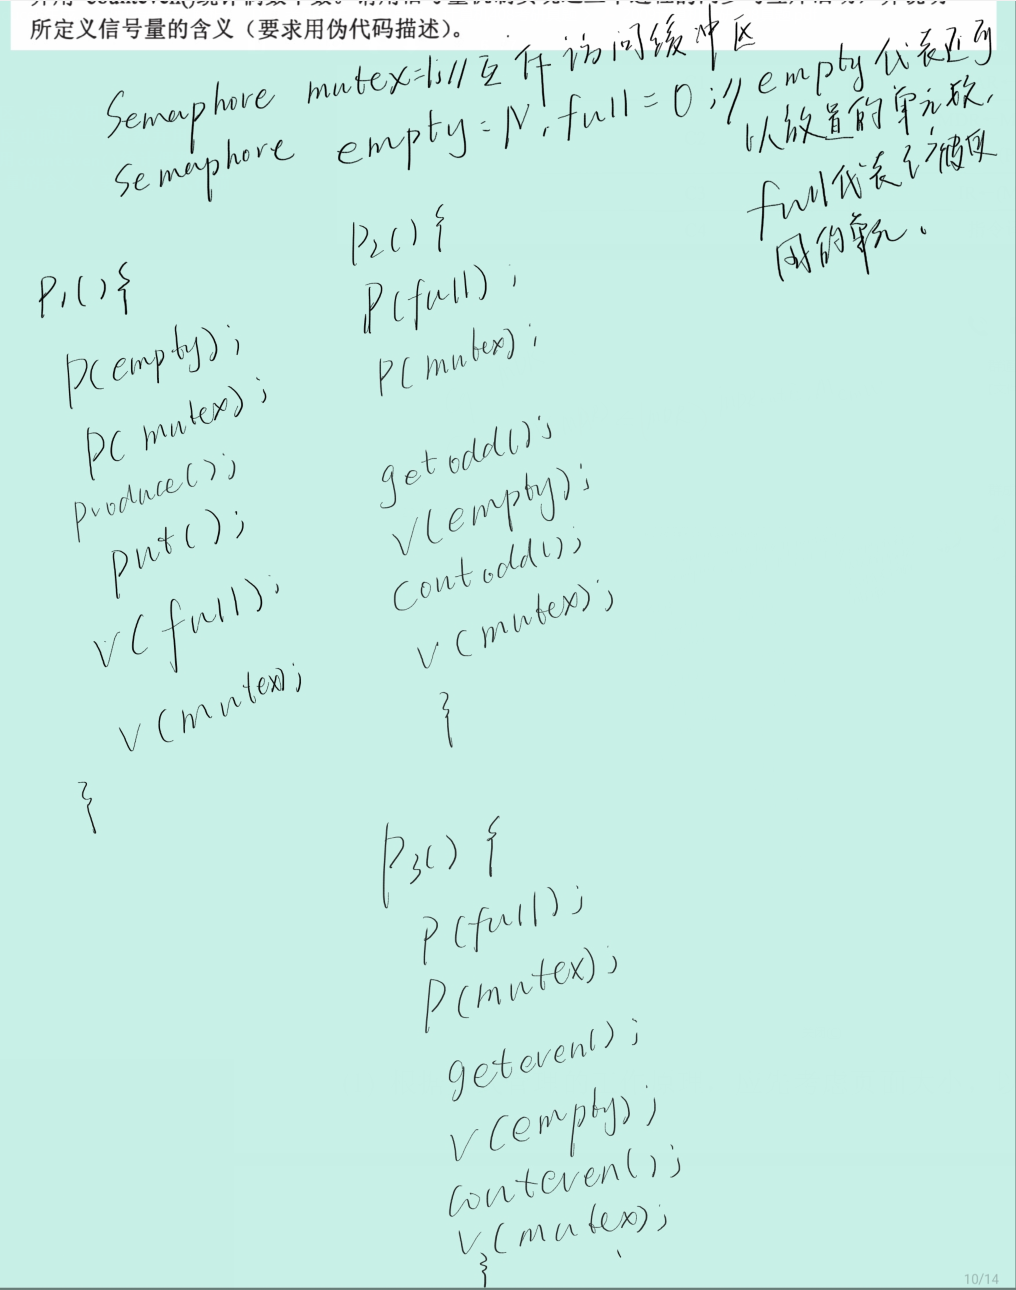 所定义信号量的含义（要求用伪代码描述）。
Semaphore mutex=1;//互斥访问缓冲区
Semaphore empty=N,full=0;//empty代表还可
以放置的单元数,
full代表已被使
用的单元。
P1(){
P(empty);
P(mutex);
produce();
put();
V(full);
V(mutex);
}
P2(){
P(full);
P(mutex);
getodd();
V(empty);
contodd();
V(mutex);
}
P3(){
P(full);
P(mutex);
geteven();
V(empty);
conteven();
V(mutex);
}
10/14